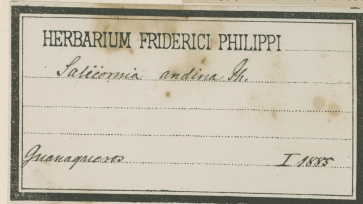 HERBARIUM FRIDERICI PHILIPPI
Salicornia andina Ph.
Guanaqueros I 1885